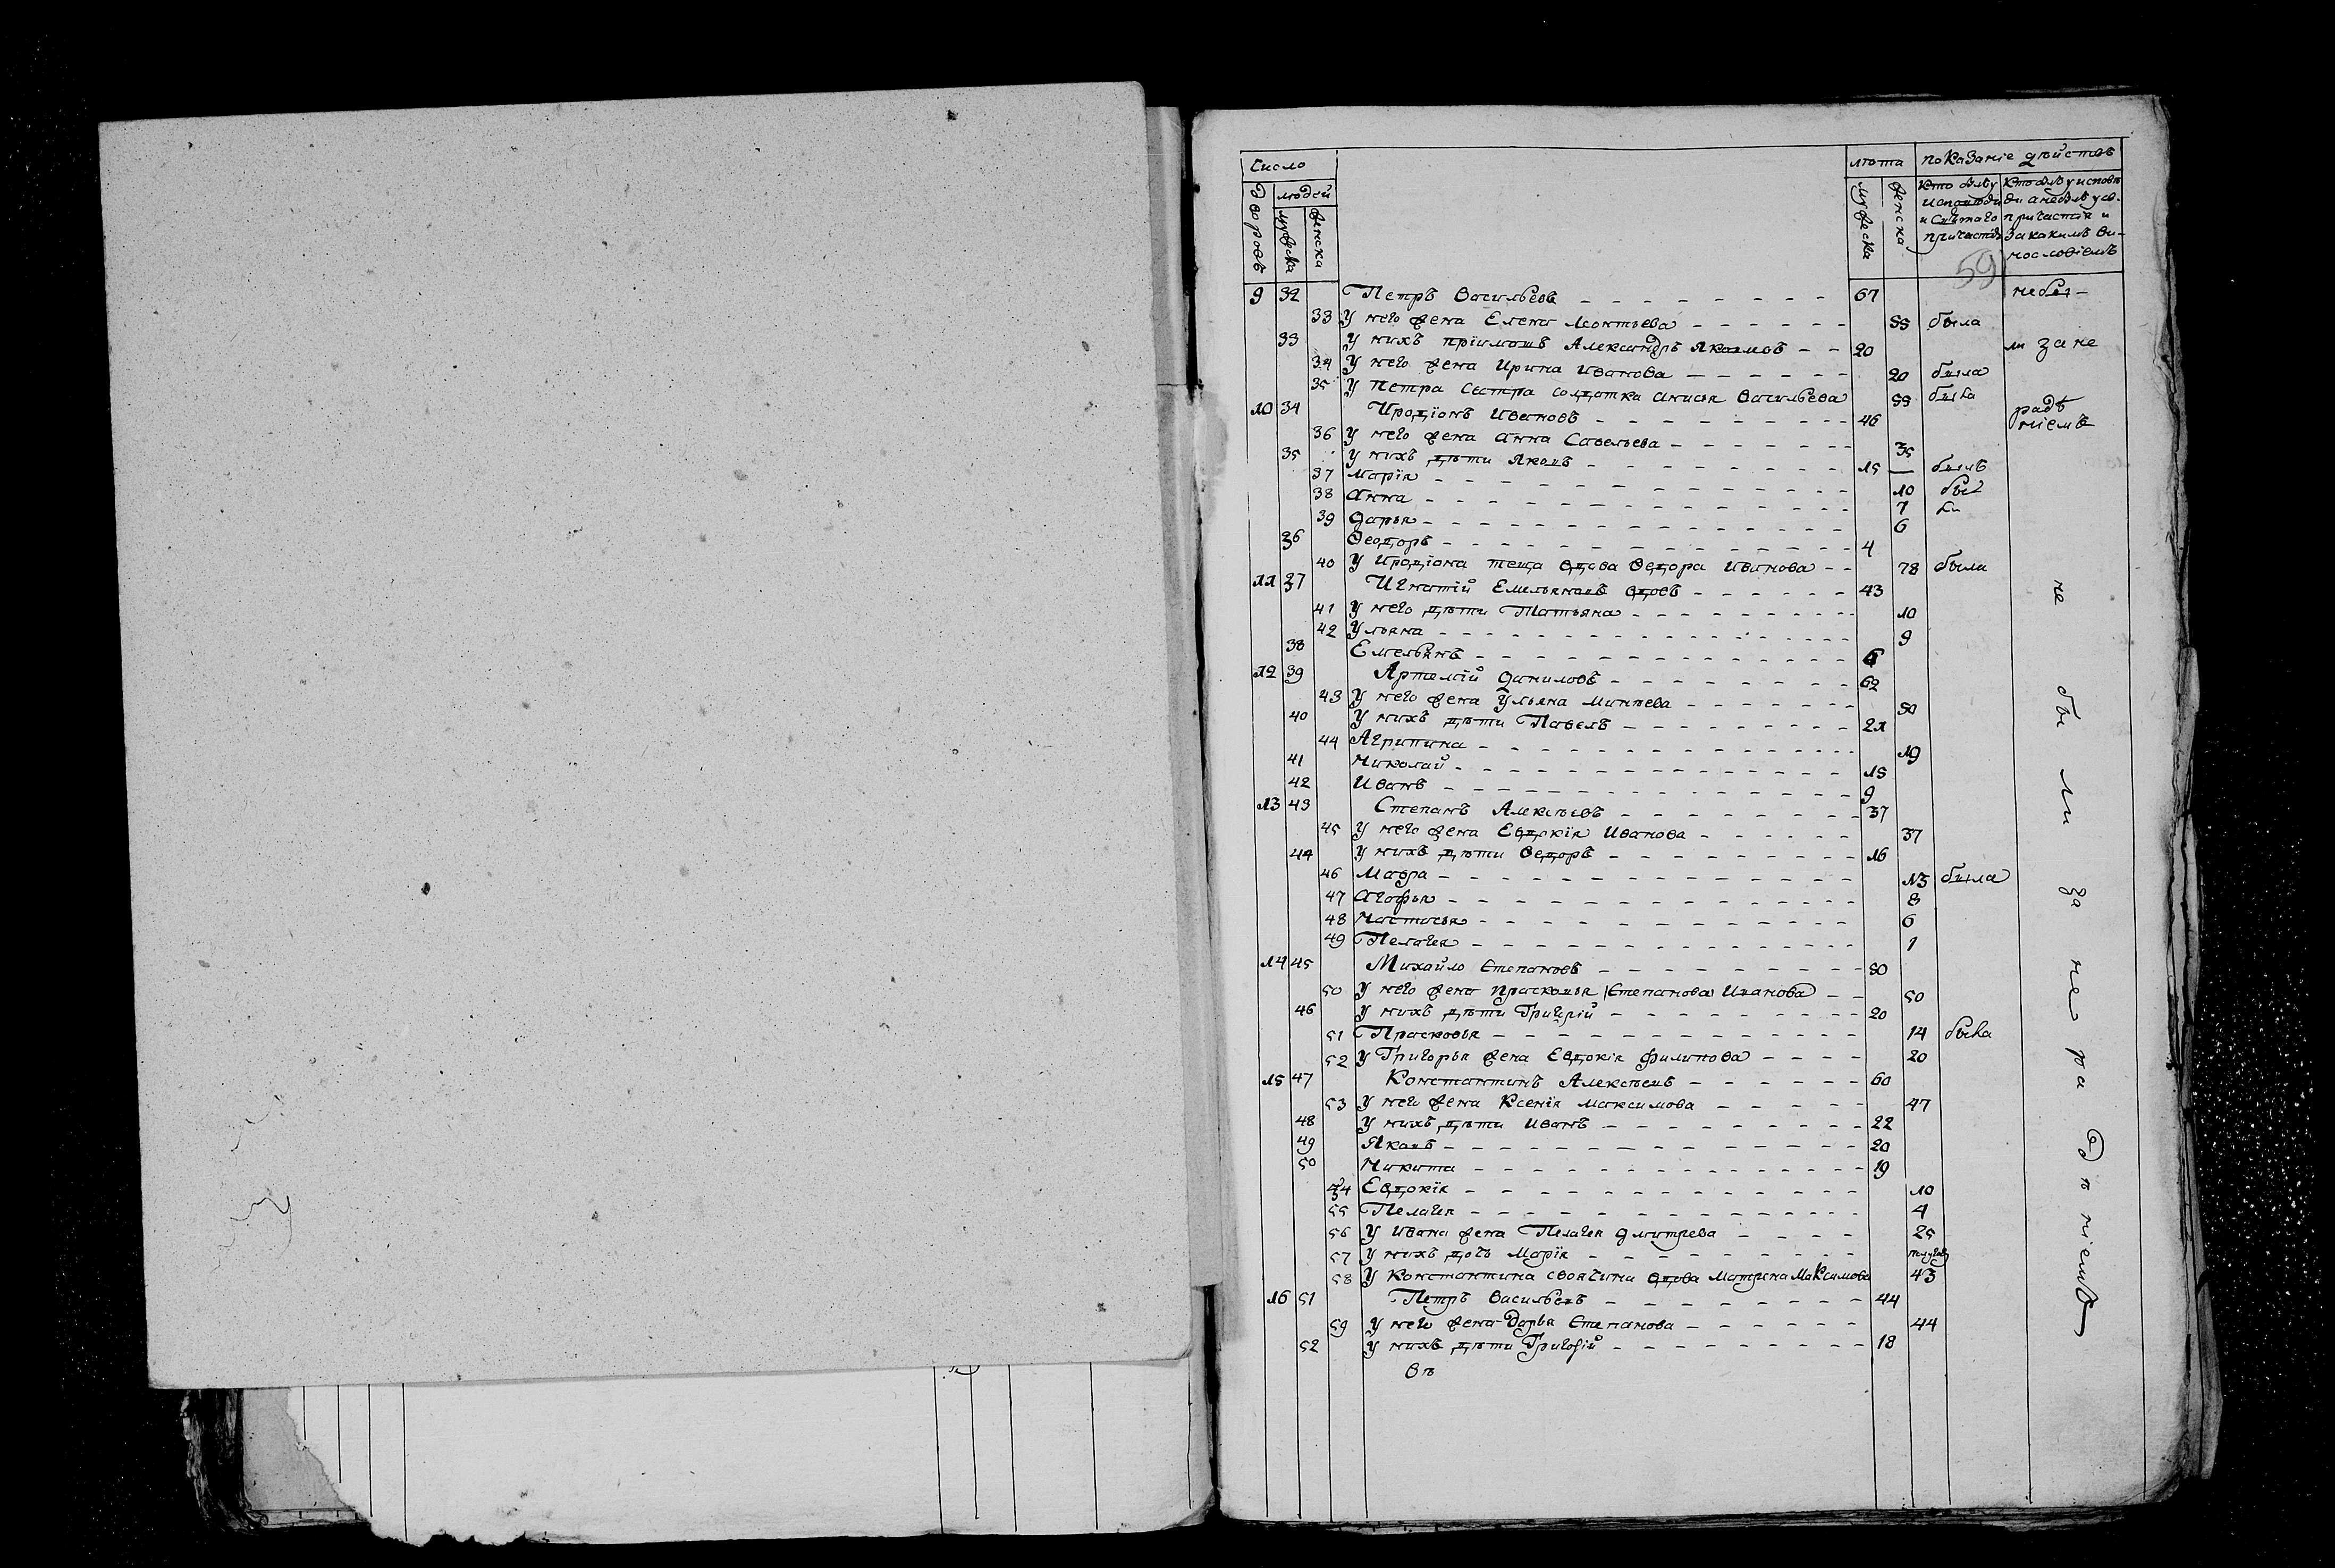 Число
людей
Дворовъ
мужеска
женска
лѣта
мужеска
женска
показаніе дѣйствъ
кто былъ у исповѣди и святаго причастія
кто былъ у исповѣди а небылъ у св. причастія и за какимъ винословіемъ
59
9 32 Петръ Васильевъ 67 небы-
33 У него жена Елена Леонтьева 55 была
33 У нихъ пріимошъ Александръ Яковлевъ 20 ли за не
34 У него жена Ирина Иванова 20 была
35 У Петра сестра солдатка Анисья Васильева 55 была радѣніемъ
10 34 Иродіонъ Ивановъ 46
36 У него жена Анна Савельева 35
35 У нихъ дѣти Яковъ 15 былъ
37 Марія 10 был
38 Анна 7
39 Дарья 6
36 Ѳеодоръ 4
40 У Иродіона теща вдова Ѳедора Иванова 78 была
11 37 Игнатій Емельяновъ вдовъ 43
41 У него дѣти Татьяна 10
42 Ульяна 9
38 Емельянъ 6
12 39 Артемій Даниловъ 62
43 У него жена Ульяна Минѣева 50
40 У нихъ дѣти Павелъ 21
44 Агрипина 19
41 Николай 15
42 Иванъ 9
13 43 Степанъ Алексѣевъ 37
45 У него жена Евдокія Иванова 37
44 У нихъ дѣти Ѳедоръ 16
46 Мавра 13 была
47 Агофья 8
48 Настасья 6
49 Пелагея 1
14 45 Михайло Степановъ 50
50 У него жена Прасковья (Степанова) Иванова 50
46 У нихъ дѣти Григорій 20
51 Прасковья 14 была
52 У Григорья жена Евдокія Филипова 20
15 47 Константинъ Алексѣевъ 60
53 У него жена Ксенія Максимова 47
48 У нихъ дѣти Иванъ 22
49 Яковъ 20
50 Никита 19
54 Евдокія 10
55 Пелагея 4
56 У Ивана жена Пелагея Дмитрева 25
57 У нихъ дочь Марія
58 У Константина своячина вдова Матрена Максимова 43
16 51 Петръ Васильевъ 44
59 У него жена Дарья Степанова 44
52 У нихъ дѣти Григорій 18
Въ
не были за нерадѣніемъ